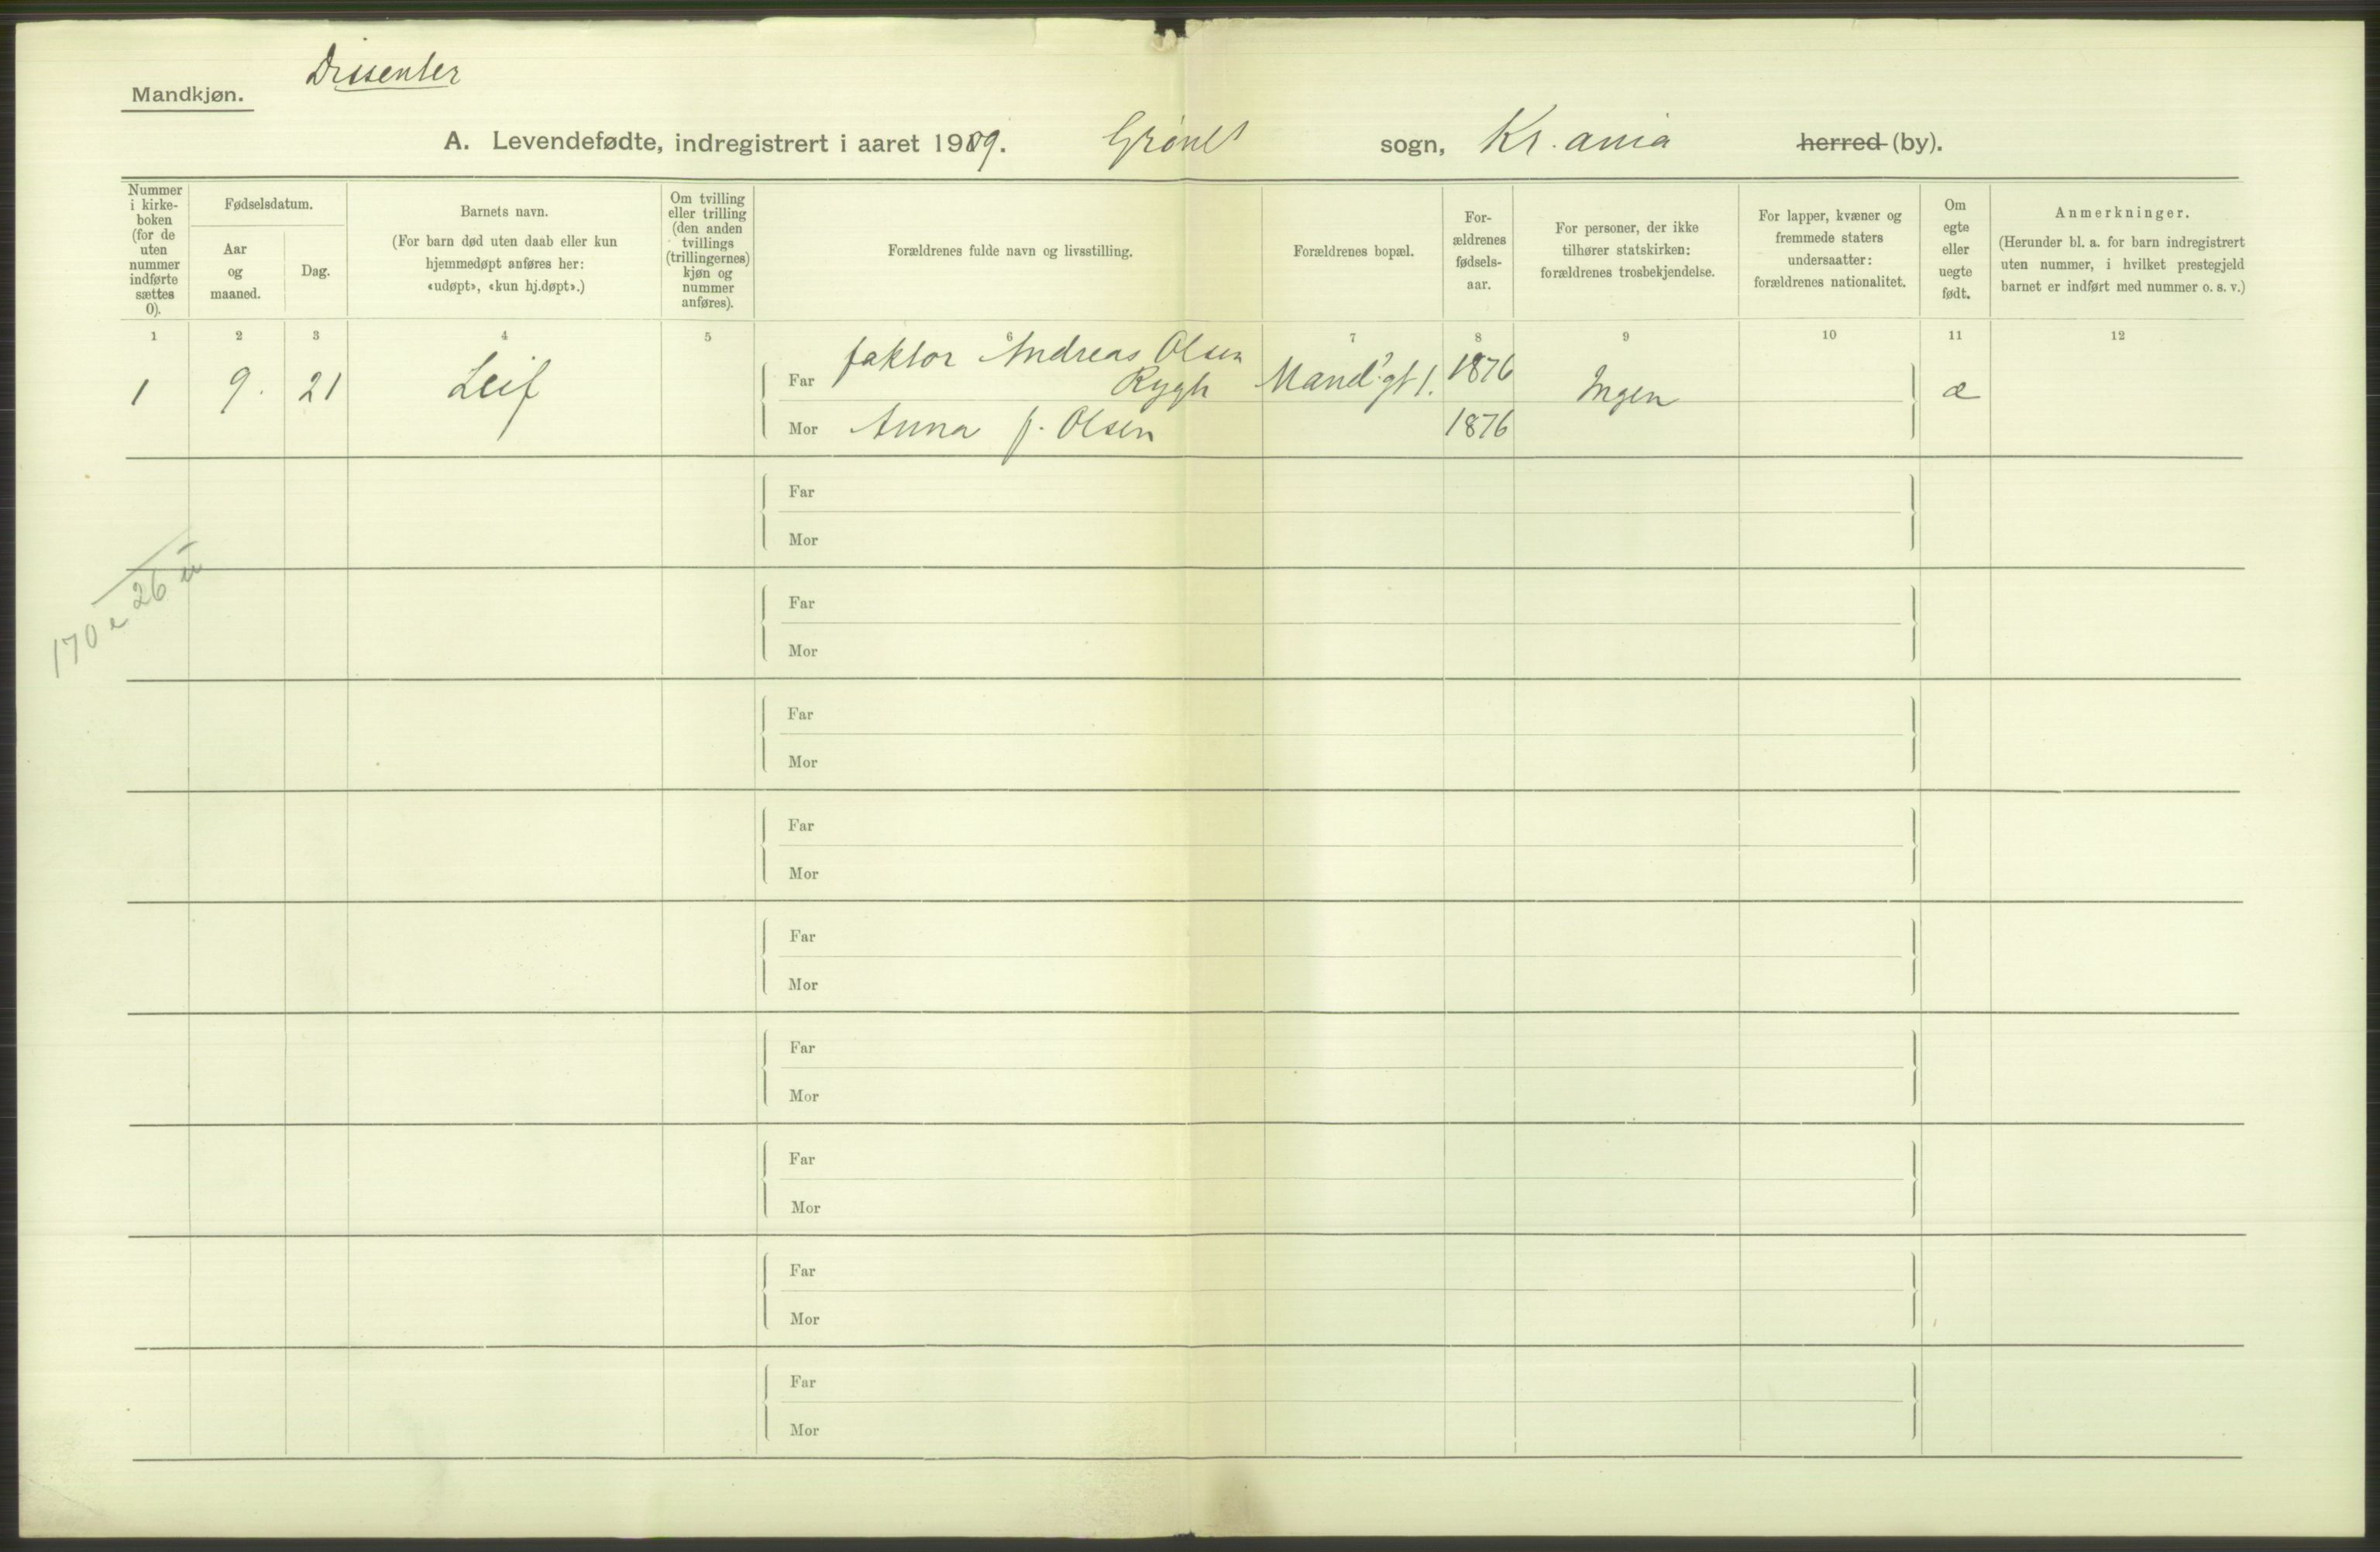 Dissenter
Mandkjøn.
A. Levendefødte, indregistrert i aaret 1909. Grønl sogn, Kr.ania herred (by).
Nummer i kirke-boken (for de uten nummer indførte sættes 0).
Fødselsdatum.
Aar og maaned.
Dag.
Barnets navn.
(For barn død uten daab eller kun
hjemmedøpt anføres her:
«udøpt», «kun hj.døpt».)
Om tvilling
eller trilling
(den anden
tvillings
(trillingernes)
kjøn og
nummer
anføres).
Forældrenes fulde navn og livsstilling.
Forældrenes bopæl.
For-
ældrenes
fødsels-
aar.
For personer, der ikke
tilhører statskirken:
forældrenes trosbekjendelse.
For lapper, kvæner og
fremmede staters
undersaatter:
forældrenes nationalitet.
Om
egte
eller
uegte
født.
Anmerkninger.
(Herunder bl. a. for barn indregistrert
uten nummer, i hvilket prestegjeld
barnet er indført med nummer o. s. v.)
1 2 3 4 5 6 7 8 9 10 11 12
1 9. 21 Leif Far faktor Andreas Olsen
Rygh 1876 Ingen æ
Mor Anna f. Olsen 1876
170 e 26 u
Far
Mor
Far
Mor
Far
Mor
Far
Mor
Far
Mor
Far
Mor
Far
Mor
Far
Mor
Far
Mor